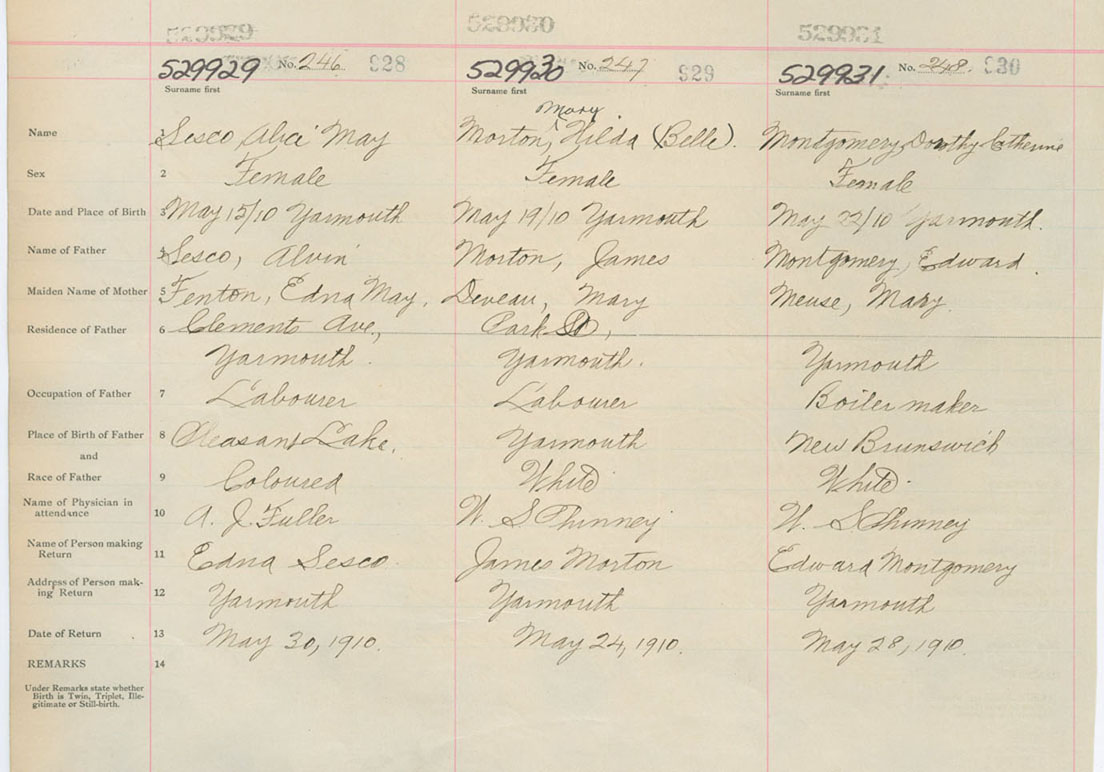 529929 529930 529931
529929 No. 246 928 529930 No. 247 929 529931 No. 248. 930
Surname first Surname first Surname first
Mary
Name 1 Sesco, Alice May Morton, Hilda (Belle). Montgomery, Dorothy Catherine
Sex 2 Female Female Female
Date and Place of Birth 3 May 15/10 Yarmouth May 19/10 Yarmouth May 22/10 Yarmouth.
Name of Father 4 Sesco, Alvin Morton, James Montgomery, Edward.
Maiden Name of Mother 5 Fenton, Edna May, Deveau, Mary Meuse, Mary
Residence of Father 6 Clements Ave, Park St,
Yarmouth. Yarmouth. Yarmouth
Occupation of Father 7 Labourer Labourer Boiler maker
Place of Birth of Father 8 Pleasant Lake. Yarmouth New Brunswick
and
Race of Father 9 Coloured White White.
Name of Physician in
attendance 10 A. J. Fuller W. S Phinney W. S Phinney
Name of Person making
Return 11 Edna Sesco. James Morton Edward Montgomery
Address of Person mak-
ing Return 12 Yarmouth Yarmouth Yarmouth
Date of Return 13 May 30, 1910. May 24, 1910. May 28, 1910.
REMARKS 14
Under Remarks state whether
Birth is Twin, Triplet, Ille-
gitimate or Still-birth.